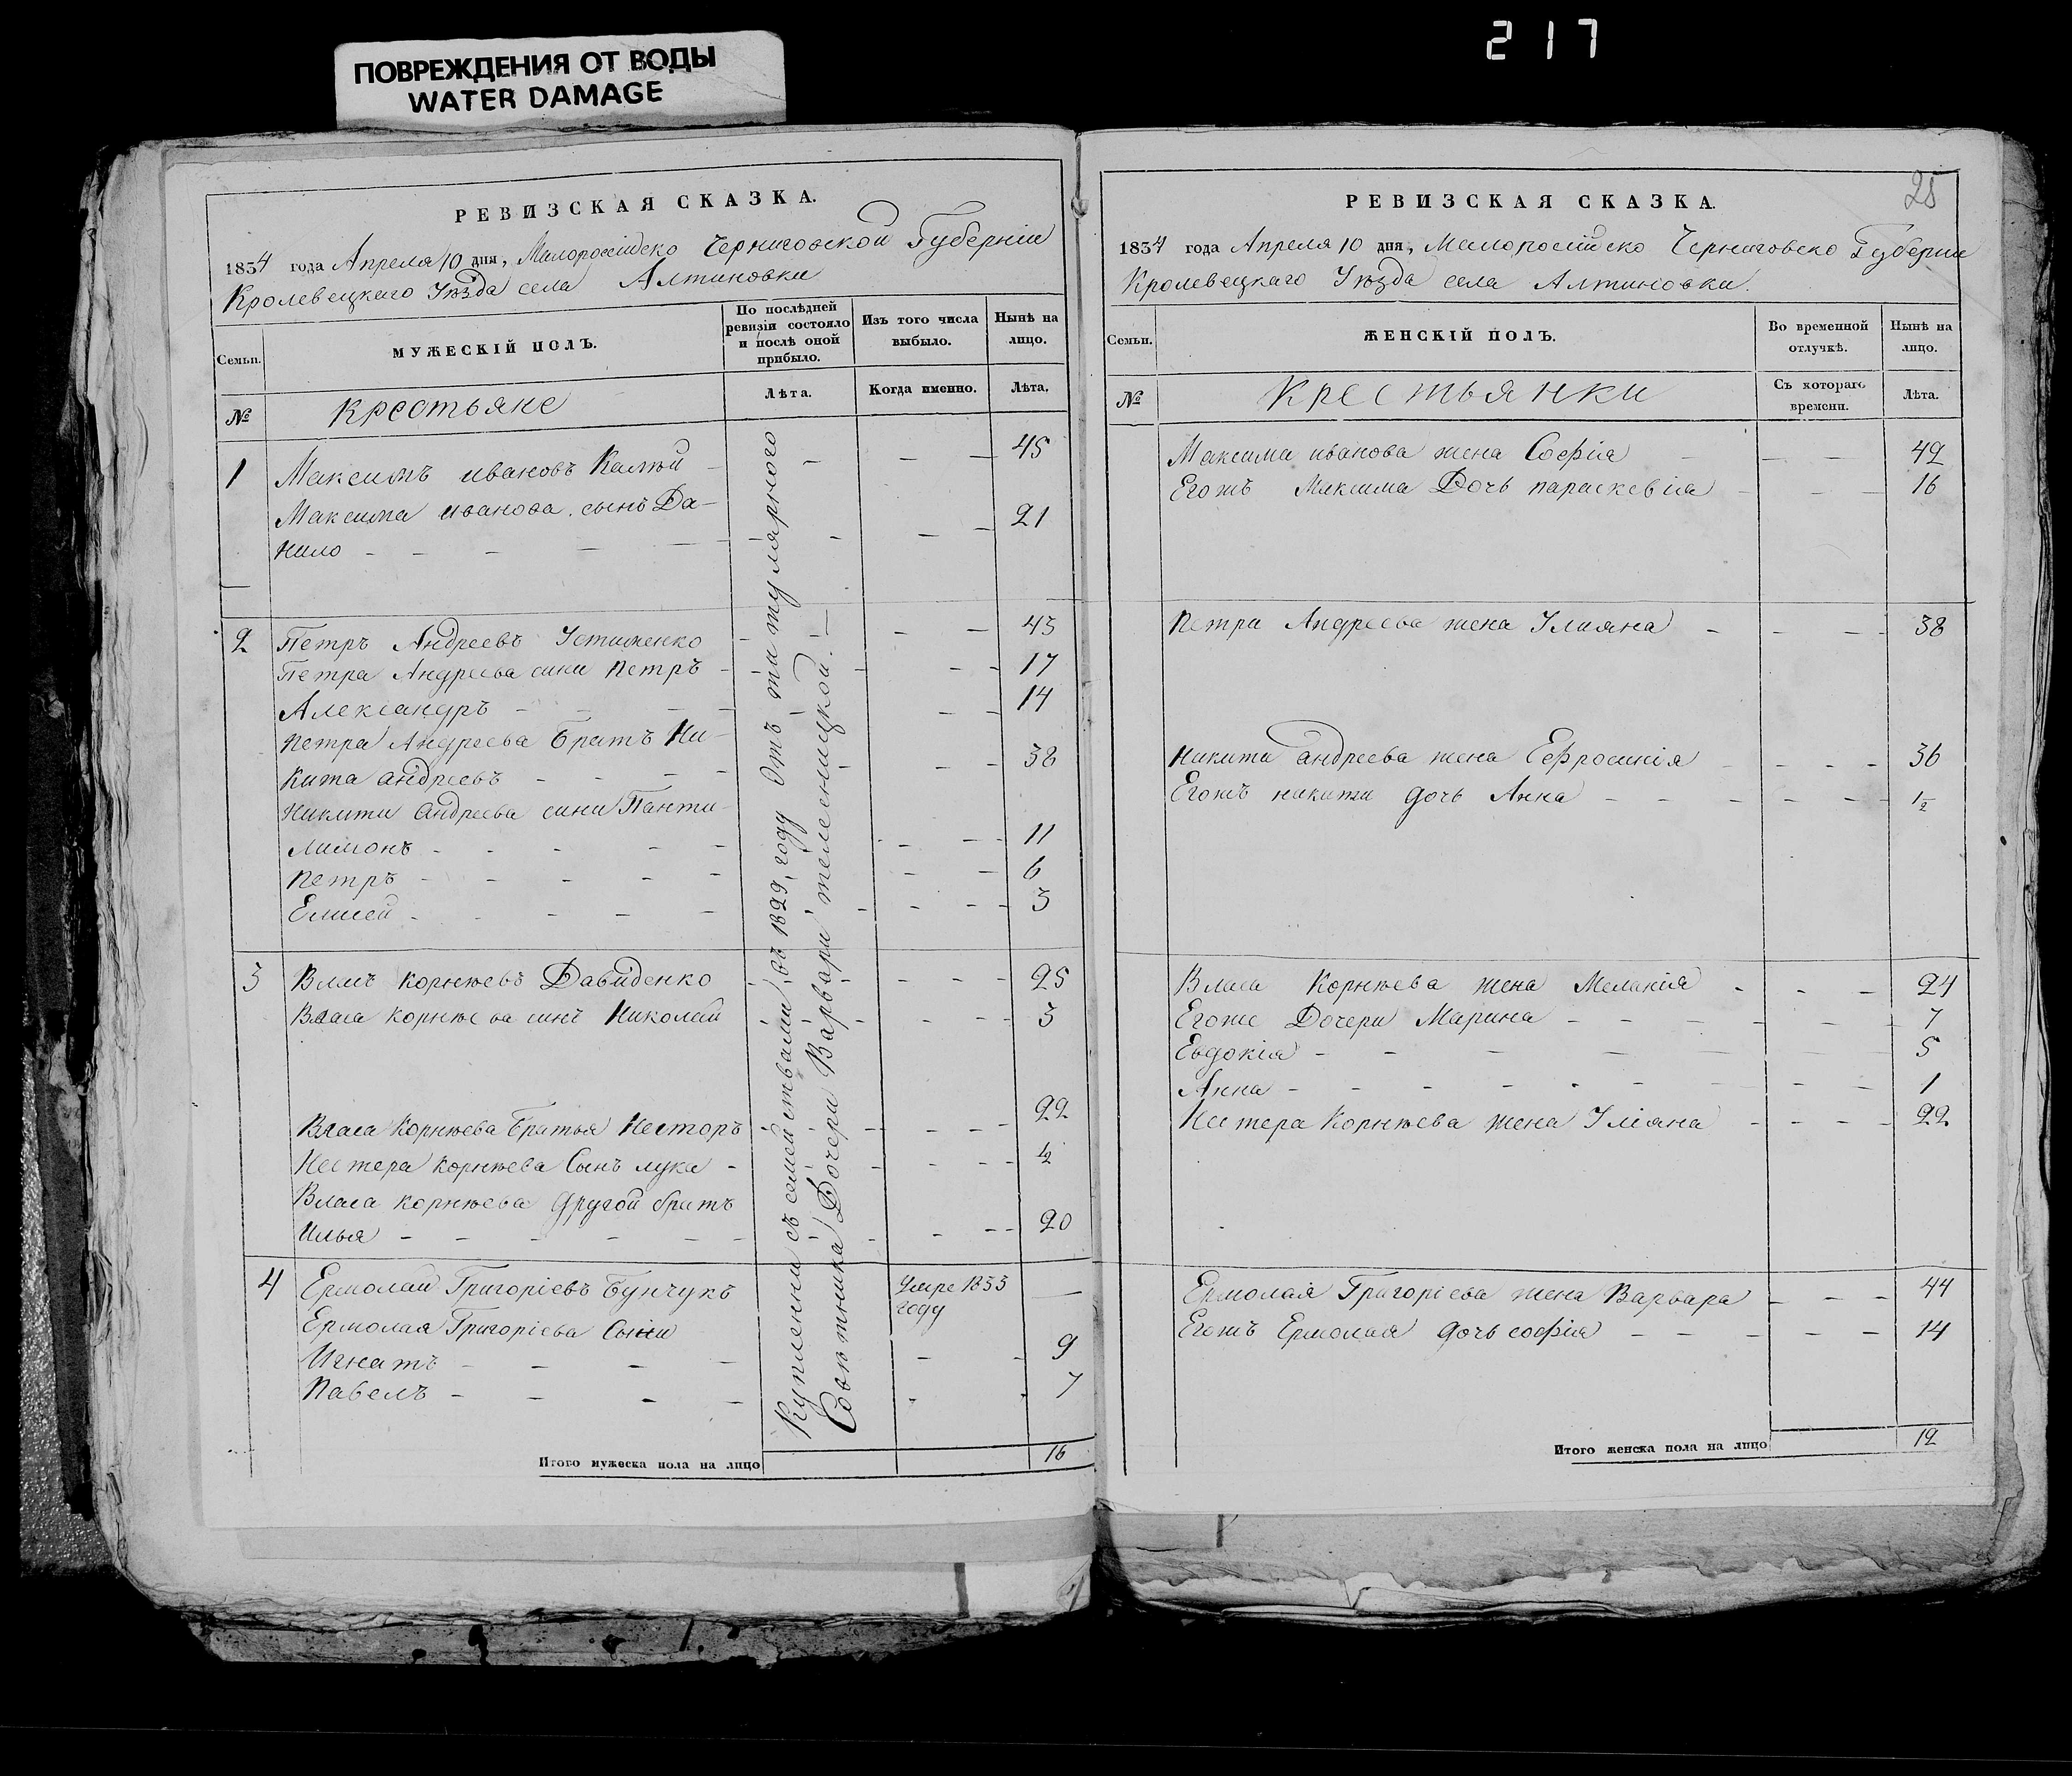 217
ПОВРЕЖДЕНИЯ ОТ ВОДЫ
WATER DAMAGE
РЕВИЗСКАЯ СКАЗКА.
1834 года Апреля 10 дня, Малоросійско Черниговской Губерніи
Кролевецкаго Уѣзда села Алтиновки
Семьи.
МУЖЕСКІЙ ПОЛЪ.
По послѣдней ревизіи состояло и послѣ оной прибыло.
Изъ того числа выбыло.
Нынѣ на лицо.
№
Крестьяне
Лѣта.
Когда именно.
Лѣта.
1 Максимъ ивановъ 45
Максима иванова сынъ Да-
нило - - - - - 21
2 Петръ Андреевъ Устименко - - - 43
Петра Андреева сини Петръ - - - 17
Александръ - - - 14
Петра Андреева братъ Ни-
кита андреевъ - - - - 38
Никити андреева сини Панти-
лимонъ - - - - 11
Петръ - - - - 6
Елисей - - - - 3
3 Власъ Корнѣевъ Давиденко - - - 25
Власа Корнѣева синъ Николай - - - 3
Власа Корнѣева братья Несторъ - - - 22
Нестера Корнѣева Сынъ лука - - - 1/2
Власа Корнѣева другой братъ
Илья - - - - - 20
4 Ермолай Григоріевъ Бунчукъ Умре 1833 —
году
Ермолая Григоріева Сыни
Игнатъ - - - - 9
Павелъ - - - - 7
Купленни съ семействами въ 1829 году Отъ титулярного
Совѣтника Дочери Варвари
Итого мужеска пола на лицо 16
25
РЕВИЗСКАЯ СКАЗКА.
1834 года Апреля 10 дня, Малоросійско Черниговско Губерни
Кролевецкаго Уѣзда села Алтиновки.
Семьи.
ЖЕНСКІЙ ПОЛЪ.
Во временной отлучкѣ.
Нынѣ на лицо.
№
Крестьянки
Съ котораго времени.
Лѣта.
Максима иванова жена Софія - - - 42
Егожъ Максима Дочь параскевія - - - 16
Петра Андреева жена Улияна - - - 38
Никити андреева жена Еефросинія - - - 36
Егожъ никити дочь Анна - - - 1/2
Власа Корнѣева жена Меланія - - - 24
Егоже Дочери Марина - - - 7
Евдокія - - - - 5
Анна - - - - 1
Нестера Корнѣева жена Уліяна - - - 22
Ермолая Григоріева жена Варвара - - - 44
Егожъ Ермолая дочь софія - - - 14
Итого женска пола на лицо 12